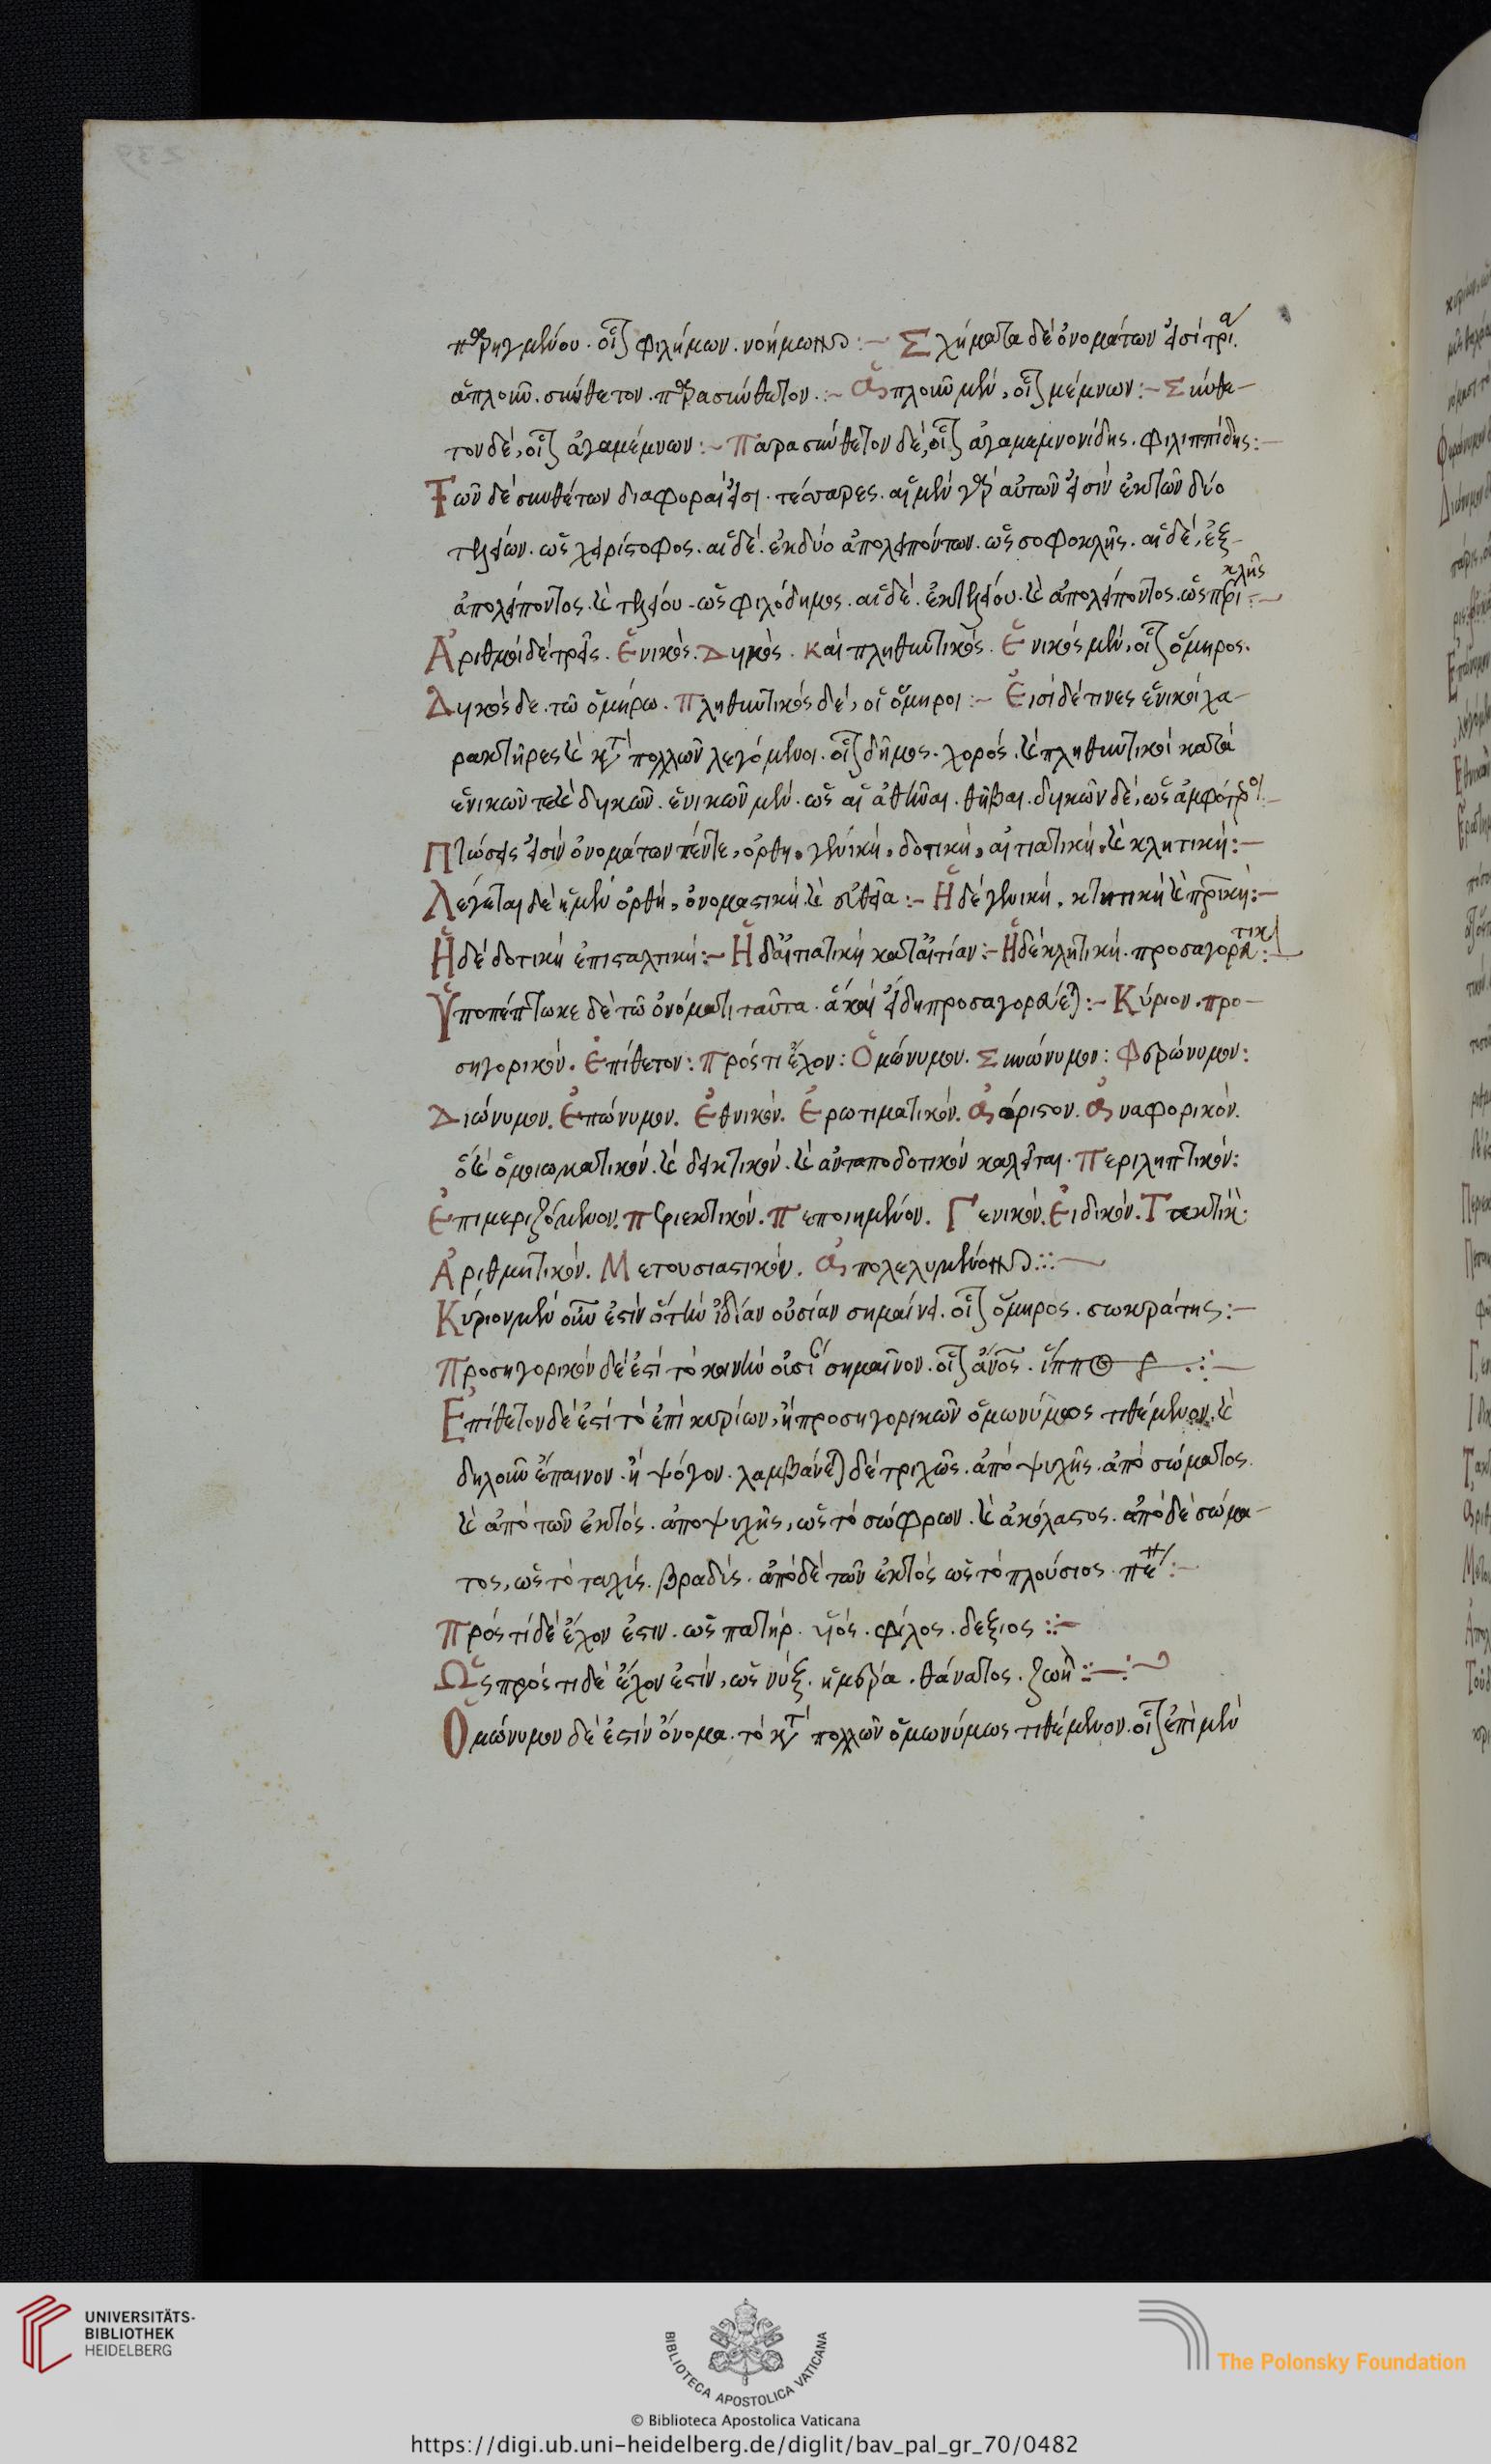 παρηγμένου. οἷον φιλήμων. νοήμων :- Σχήματα δὲ ὀνομάτων εἰσὶ τρία.
ἁπλοῦν. σύνθετον. παρασύνθετον :- Ἁπλοῦν μὲν, οἷον μέμνων :- Σύνθε-
τον δὲ, οἷον ἀγαμέμνων :- Παρασύνθετον δὲ, οἷον ἀγαμεμνονίδης. φιλιππίδης :-
Τῶν δὲ συνθέτων διαφοραί εἰσι. τέσσαρες. αἱ μὲν γὰρ αὐτῶν εἰσὶν ἐκ τῶν δύο
τελείων. ὡς χειρίσοφος. αἱ δὲ. ἐκ δύο ἀπολειπόντων. ὡς σοφοκλῆς. αἱ δὲ, ἐξ
ἀπολείποντος. καὶ τελείου. ὡς φιλόδημος. αἱ δὲ. ἐκ τελείου. καὶ ἀπολείποντος. ὡς περικλῆς :-
Ἀριθμοὶ δὲ τρεῖς. Ἑνικὸς. Δυικὸς. Καὶ πληθυντικὸς. Ἑνικὸς μὲν, οἷον ὅμηρος.
Δυικὸς δε. τὼ ὁμήρω. Πληθυντικὸς δὲ, οἱ ὅμηροι :- Εἰσὶ δέ τινες ἑνικοὶ χα-
ρακτῆρες καὶ κατὰ πολλῶν λεγόμενοι. οἷον δῆμος. χορός. καὶ πληθυντικοὶ κατὰ
ἑνικῶν τε καὶ δυικῶν. ἑνικῶν μὲν. ὡς αἱ ἀθῆναι. θῆβαι. δυικῶν δὲ, ὡς ἀμφότεροι :-
Πτώσεις εἰσὶν ὀνομάτων πέντε, ὀρθη, γενικὴ, δοτικὴ, αἰτιατικὴ, καὶ κλητικὴ :-
Λέγεται δὲ ἡ μὲν ὀρθὴ, ὀνομαστικὴ. καὶ εὐθεῖα :- Ἡ δὲ γενικὴ, κτητικὴ καὶ πατρικὴ :-
Ἡ δὲ δοτικὴ ἐπισταλτικὴ :- Ἡ δ' αἰτιατικὴ κατ' αἰτίαν :- Ἡ δὲ κλητικὴ. προσαγορευτικὴ :-
Ὑποπέπτωκε δὲ τῶ ὀνόματι ταῦτα. ἃ καὶ εἴδη προσαγορεύεται :- Κύριον. προ-
σηγορικόν. Ἐπίθετον : Πρός τι ἔχον : Ὁμώνυμον. Συνώνυμον : Φερώνυμον :
Διώνυμον. Ἐπώνυμον. Ἐθνικόν. Ἐρωτιματικόν. Ἀόριστον. Ἀναφορικὸν.
ὃ καὶ ὁμοιωματικὸν. καὶ δεικτικὸν. καὶ ἀνταποδοτικὸν καλεῖται. Περιληπτικόν :
Ἐπιμεριζόμενον. Περιεκτικόν. Πεποιημένον. Γενικόν. Εἰδικόν. Τακτικὸν.
Ἀριθμητικόν. Μετουσιαστικόν. Ἀπολελυμένον :-
Κύριον μὲν οὖν ἐστὶν ὃ τὴν ἰδίαν οὐσίαν σημαίνει. οἷον ὅμηρος. σωκράτης :-
Προσηγορικὸν δέ ἐστὶ τὸ κοινὴν οὐσίαν σημαῖνον. οἷον ἄνος. ἵππος :-
Ἐπίθετον δέ ἐστὶ τὸ ἐπὶ κυρίων, ἢ προσηγορικῶν ὁμωνύμως τιθέμενον. καὶ
δηλοῦν ἔπαινον. ἢ ψόγον. λαμβάνεται δὲ τριχῶς. ἀπὸ ψυχῆς. ἀπὸ σώματος.
καὶ ἀπὸ τῶν ἐκτός. ἀπο ψυχῆς, ὡς τὸ σώφρων. καὶ ἀκόλαστος. ἀπὸ δὲ σώμα-
τος, ὡς τὸ ταχύς. βραδύς. ἀπὸ δὲ τῶν ἐκτὸς ὡς τὸ πλούσιος. πένης :-
Πρός τί δὲ ἔχον ἐστιν. ὡς πατὴρ. υἱός. φίλος. δεξιος :-
Ὡς πρός τι δὲ ἔχον ἐστὶν, ὡς νύξ. ἡμέρα. θάνατος. ζωὴ :-
Ὁμώνυμον δέ ἐστὶν ὄνομα. τὸ κατὰ πολλῶν ὁμωνύμως τιθέμενον. οἷον ἐπὶ μὲν
UNIVERSITÄTS-
BIBLIOTHEK
HEIDELBERG
BIBLIOTECA APOSTOLICA VATICANA
The Polonsky Foundation
© Biblioteca Apostolica Vaticana
https://digi.ub.uni-heidelberg.de/diglit/bav_pal_gr_70/0482